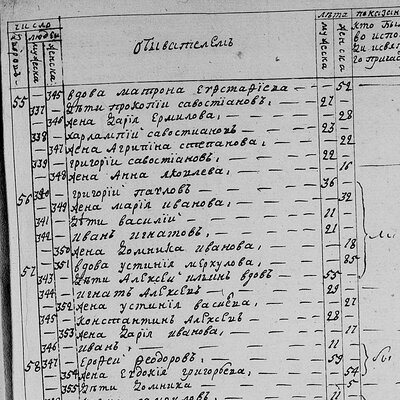 число
людей
мужеска
женска
Обыватели
лѣта
мужеска
женска
показан
кто был
во испо
55 345 вдова матрона Евстафиева — 52
337 Дѣти прокопїи савостїановъ, 27
346 жена Дарїя Ермилова, 28
338 харлампїи савостиановъ 23
347 жена Агрипина степанова, 22
339 григорїи савостїановъ, 22
348 жена Анна Яковлева, 16
56 340 григорїи павловъ 36
349 жена марїя иванова, 39
341 Дѣти василїи 11
342 иванъ игнатовъ, 21
350 жена Домника иванова, 18
351 вдова устинїя меркулова, 85
57 343 Дѣти Алексеи ильинъ вдовъ 55
344 игнатъ Алексеевъ 29
352 жена устинїя васильева, 27
345 Константинъ Алексеевъ 28
353 жена Дарїя иванова, 27
346 иванъ, 11
58 347 Ерофеи Феодоровъ, 59
354 жена Евдокїя григорьева, 54
355 Дѣти Домника 5